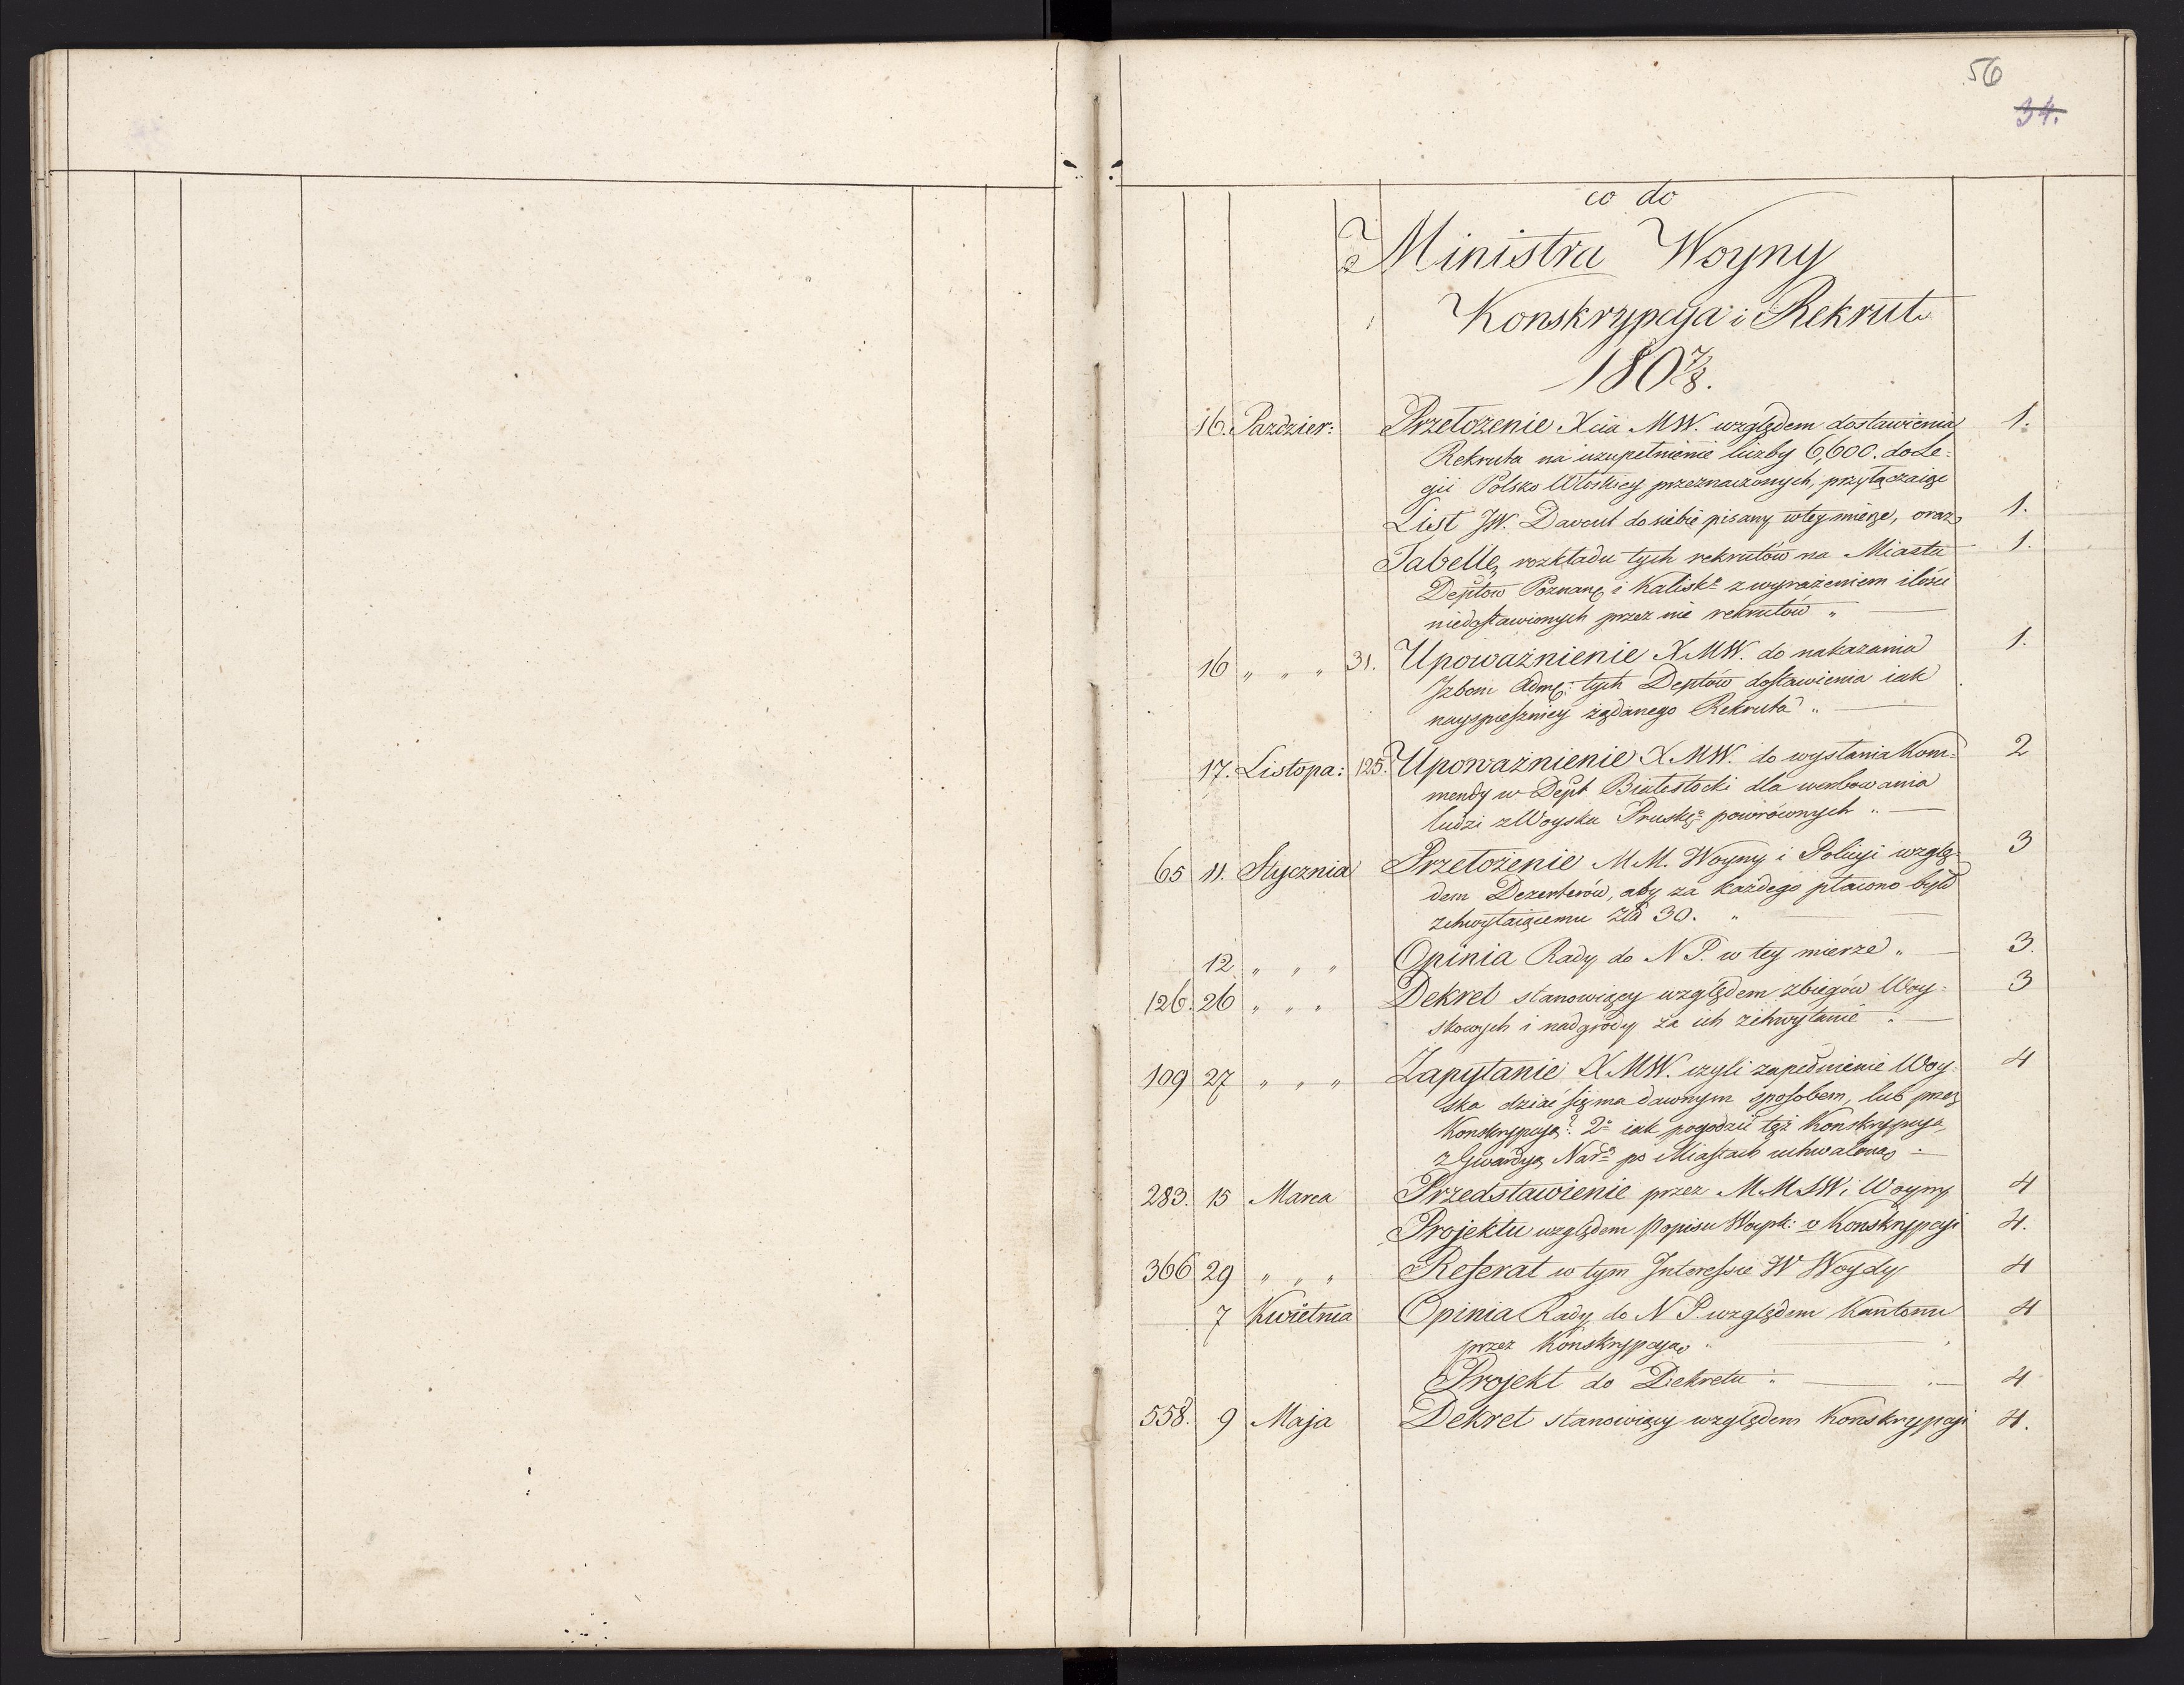 56
34.
co do
Ministra Woyny
Konskrypcya i Rekrut
180 7/8.
16. Pazdzier: Przełożenie Xcia MW. względem dostawienia 1.
Rekruta na uzupełnienie liczby 6,600. do Le=
gii Polsko Włoskiey przeznaczonych, przyłączaiąc
List JW. Davout do siebie pisany w tey mierze, oraz 1.
Tabellę rozkładu tych rekrutów na Miasta 1.
Deptów Poznanę i Kaliskº z wyrażeniem ilości
niedostawionych przez nie rekrutów "
16 " " " 31. Upoważnienie XMW. do nakazania 1.
Izbom Admę: tych Deptów dostawienia iak
nayspieszniey żądanego Rekruta "
17. Listopa: 125. Upoważnienie XMW. do wysłania Kom= 2
mendy w Dept Białestocki dla werbowania
ludzi z Woyska Pruskº powrownych "
65 11. Stycznia Przełożenie MM. Woyny i Policyi wzglę= 3
dem Dezerterów, aby za każdego płacono było
zchwytaiącemu Złł 30. "
12 " " " Opinia Rady do N P. w tey mierze " 3.
126. 26 " " " Dekret stanowiący względem zbiegów Woy= 3
skowych i nadgrody za ich zchwytanie "
109 27 " " " Zapytanie XMW. czyli zapełnienie Woy= 4
ska dziać się ma dawnym sposobem, lub przez
Konskrypcyą? 2º iak pogodzić też Konskrypcyą
z Gwardyą Narº po Miastach uchwaloną "
283. 15 Marca Przedstawienie przez MMSW i Woyny 4
Projektu względem popisu Woysk: v Konskrypcyi 4.
366 29 " " " Referat w tym Interessie W Woydy 4
7 Kwietnia Opinia Rady do N P. względem Kantonu 4
przez Konskrypcyą "
Projekt do Dekretu " 4
558. 9 Maja Dekret stanowiący względem Konskrypcyi 4.